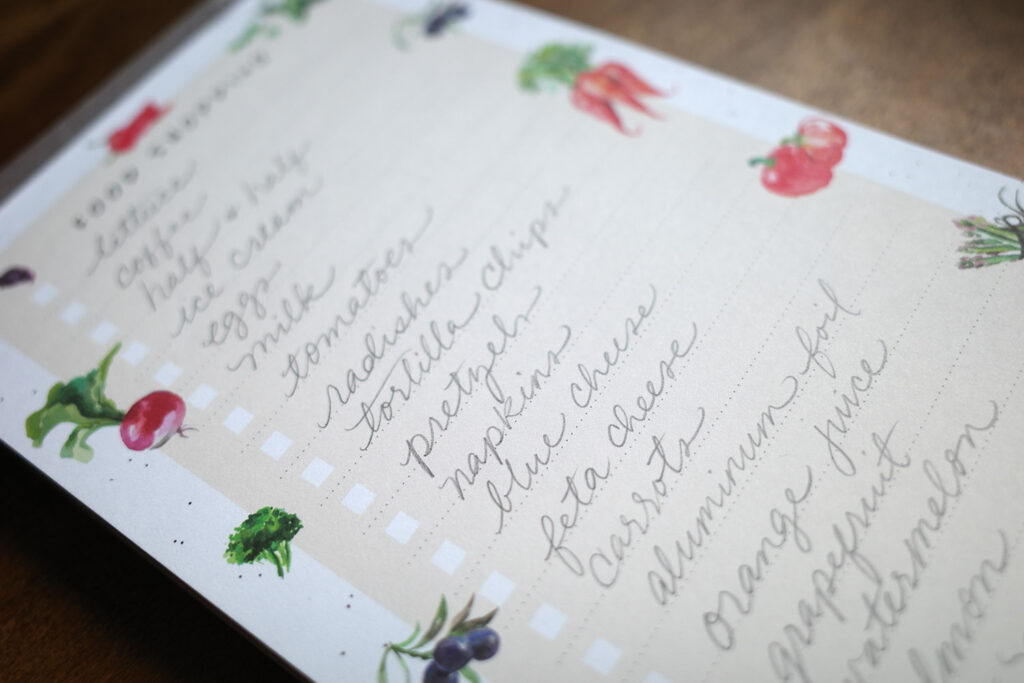 GOOD GROCERIES
lettuce
coffee
half & half
ice cream
eggs
milk
tomatoes
radishes
tortilla chips
pretzels
napkins
blue cheese
feta cheese
carrots
aluminum foil
orange juice
grapefruit
watermelon